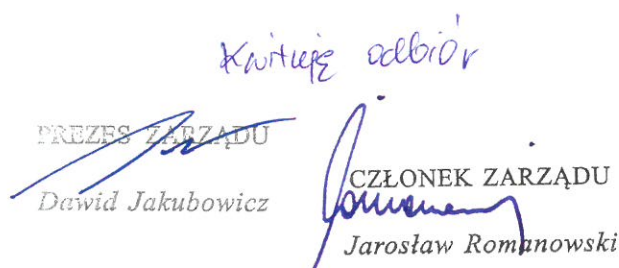 Kwituję odbiór
PREZES ZARZĄDU
Dawid Jakubowicz
CZŁONEK ZARZĄDU
Romanow
Jarosław Romanowski